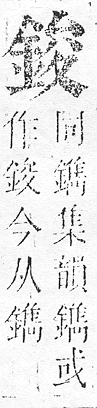 鋑
同鐫集韻鐫或
作鋑今从鐫